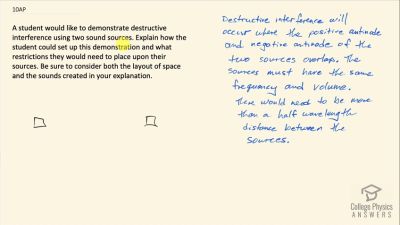 10AP
A student would like to demonstrate destructive
interference using two sound sources. Explain how the
student could set up this demonstration and what
restrictions they would need to place upon their
sources. Be sure to consider both the layout of space
and the sounds created in your explanation.
Destructive interference will
occur where the positive antinode
and negative antinode of the
two sources overlap. The
sources must have the same
frequency and volume.
There would need to be more
than a half wavelength
distance between the
sources.
College Physics
ANSWERS